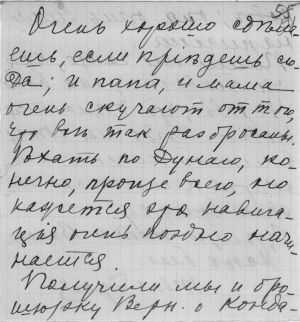 58
Очень хорошо сдѣла-
ешь, если пріѣдешь сю-
да; и папа, и мама
очень скучают от того,
что вы так разбросаны.
Ѣхать по Дунаю, ко-
нечно, проще всего, но
кажется эта навига-
ція очень поздно начи-
нается.
Получили мы и бро-
шюрку Верн. о Конда-